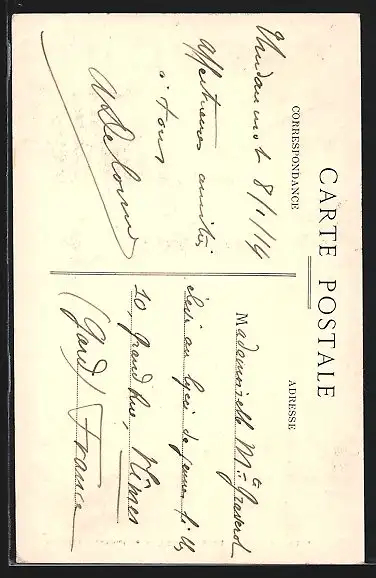 CARTE POSTALE
CORRESPONDANCE
8/1/14
Affectueuses amitiés
à tous
ADRESSE
Mademoiselle Mte Graverol
élève au lycée de jeunes filles
10 Grand'Rue, Nîmes
(Gard) France